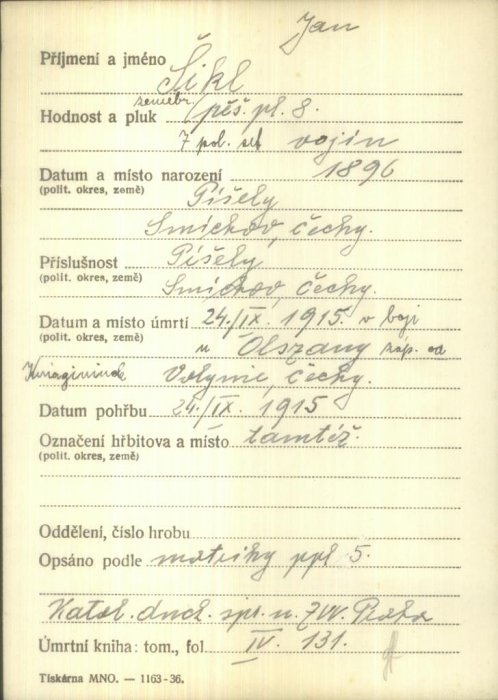 Jan
Příjmení a jméno Šikl
zeměbr.
Hodnost a pluk pěš. pl. 8.
7 pol. set vojín
Datum a místo narození 1896
(polit. okres, země) Píšely
Smíchov, Čechy.
Příslušnost Píšely
(polit. okres, země) Smíchov, Čechy.
Datum a místo úmrtí 24./IX. 1915. v boji
(polit. okres, země) u Olszany záp. od
Volynie, Čechy.
Datum pohřbu 24./IX. 1915
Označení hřbitova a místo tamtéž.
(polit. okres, země)
Oddělení, číslo hrobu
Opsáno podle matriky ppl 5.
Katol. duch. spr. u ZVV. Praha
Úmrtní kniha: tom., fol. IV. 131.
Tiskárna MNO. — 1163-36.